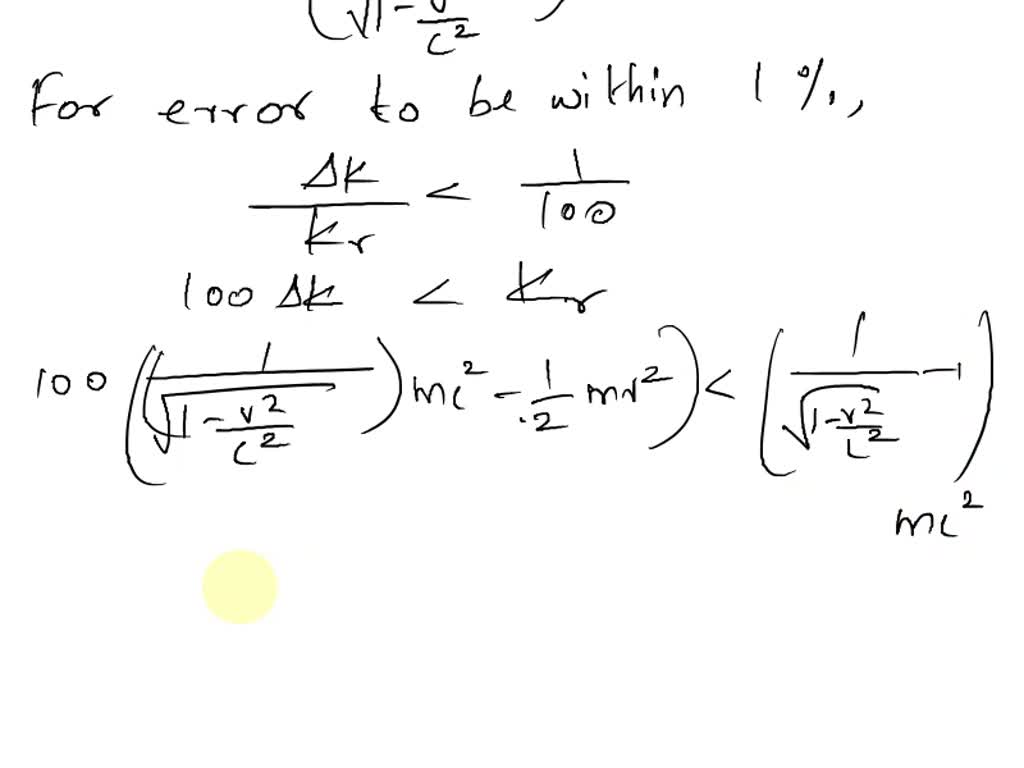 (√1 - v/c²)
For error to be within 1 %,
ΔK/Kr < 1/100
100 ΔK < Kr
100 ((1/√(1 - v²/c²)) mc² - 1/2 mv²) < (1/√(1 - v²/c²) - 1)
mc²